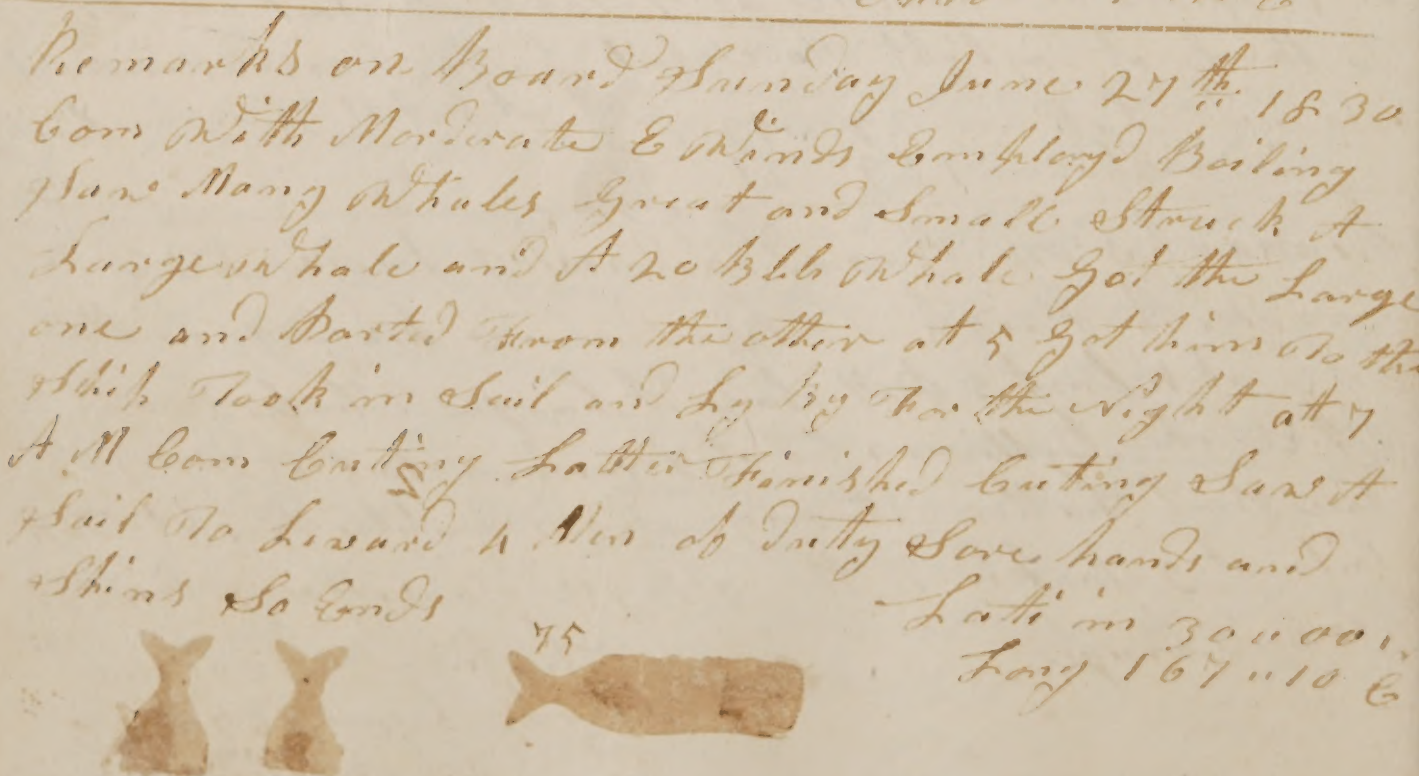 Remarks on Board Sunday June 27th 1830
Com With Morderate E Winds Employd Boiling
Saw Many Whales Great and Small Struck A
Large Whale and A 20 Bbls Whale Got the Large
one and Parted From the other at 5 Got him To the
Ship Took in Sail and Ly By For the Night at 7
A M Com Cuting Latter Finished Cuting Saw A
Sail To Leward 4 Men of Dutty Sore hands and
Shins So Ends
Lati in 30 " 00
75
Long 167 " 10 E